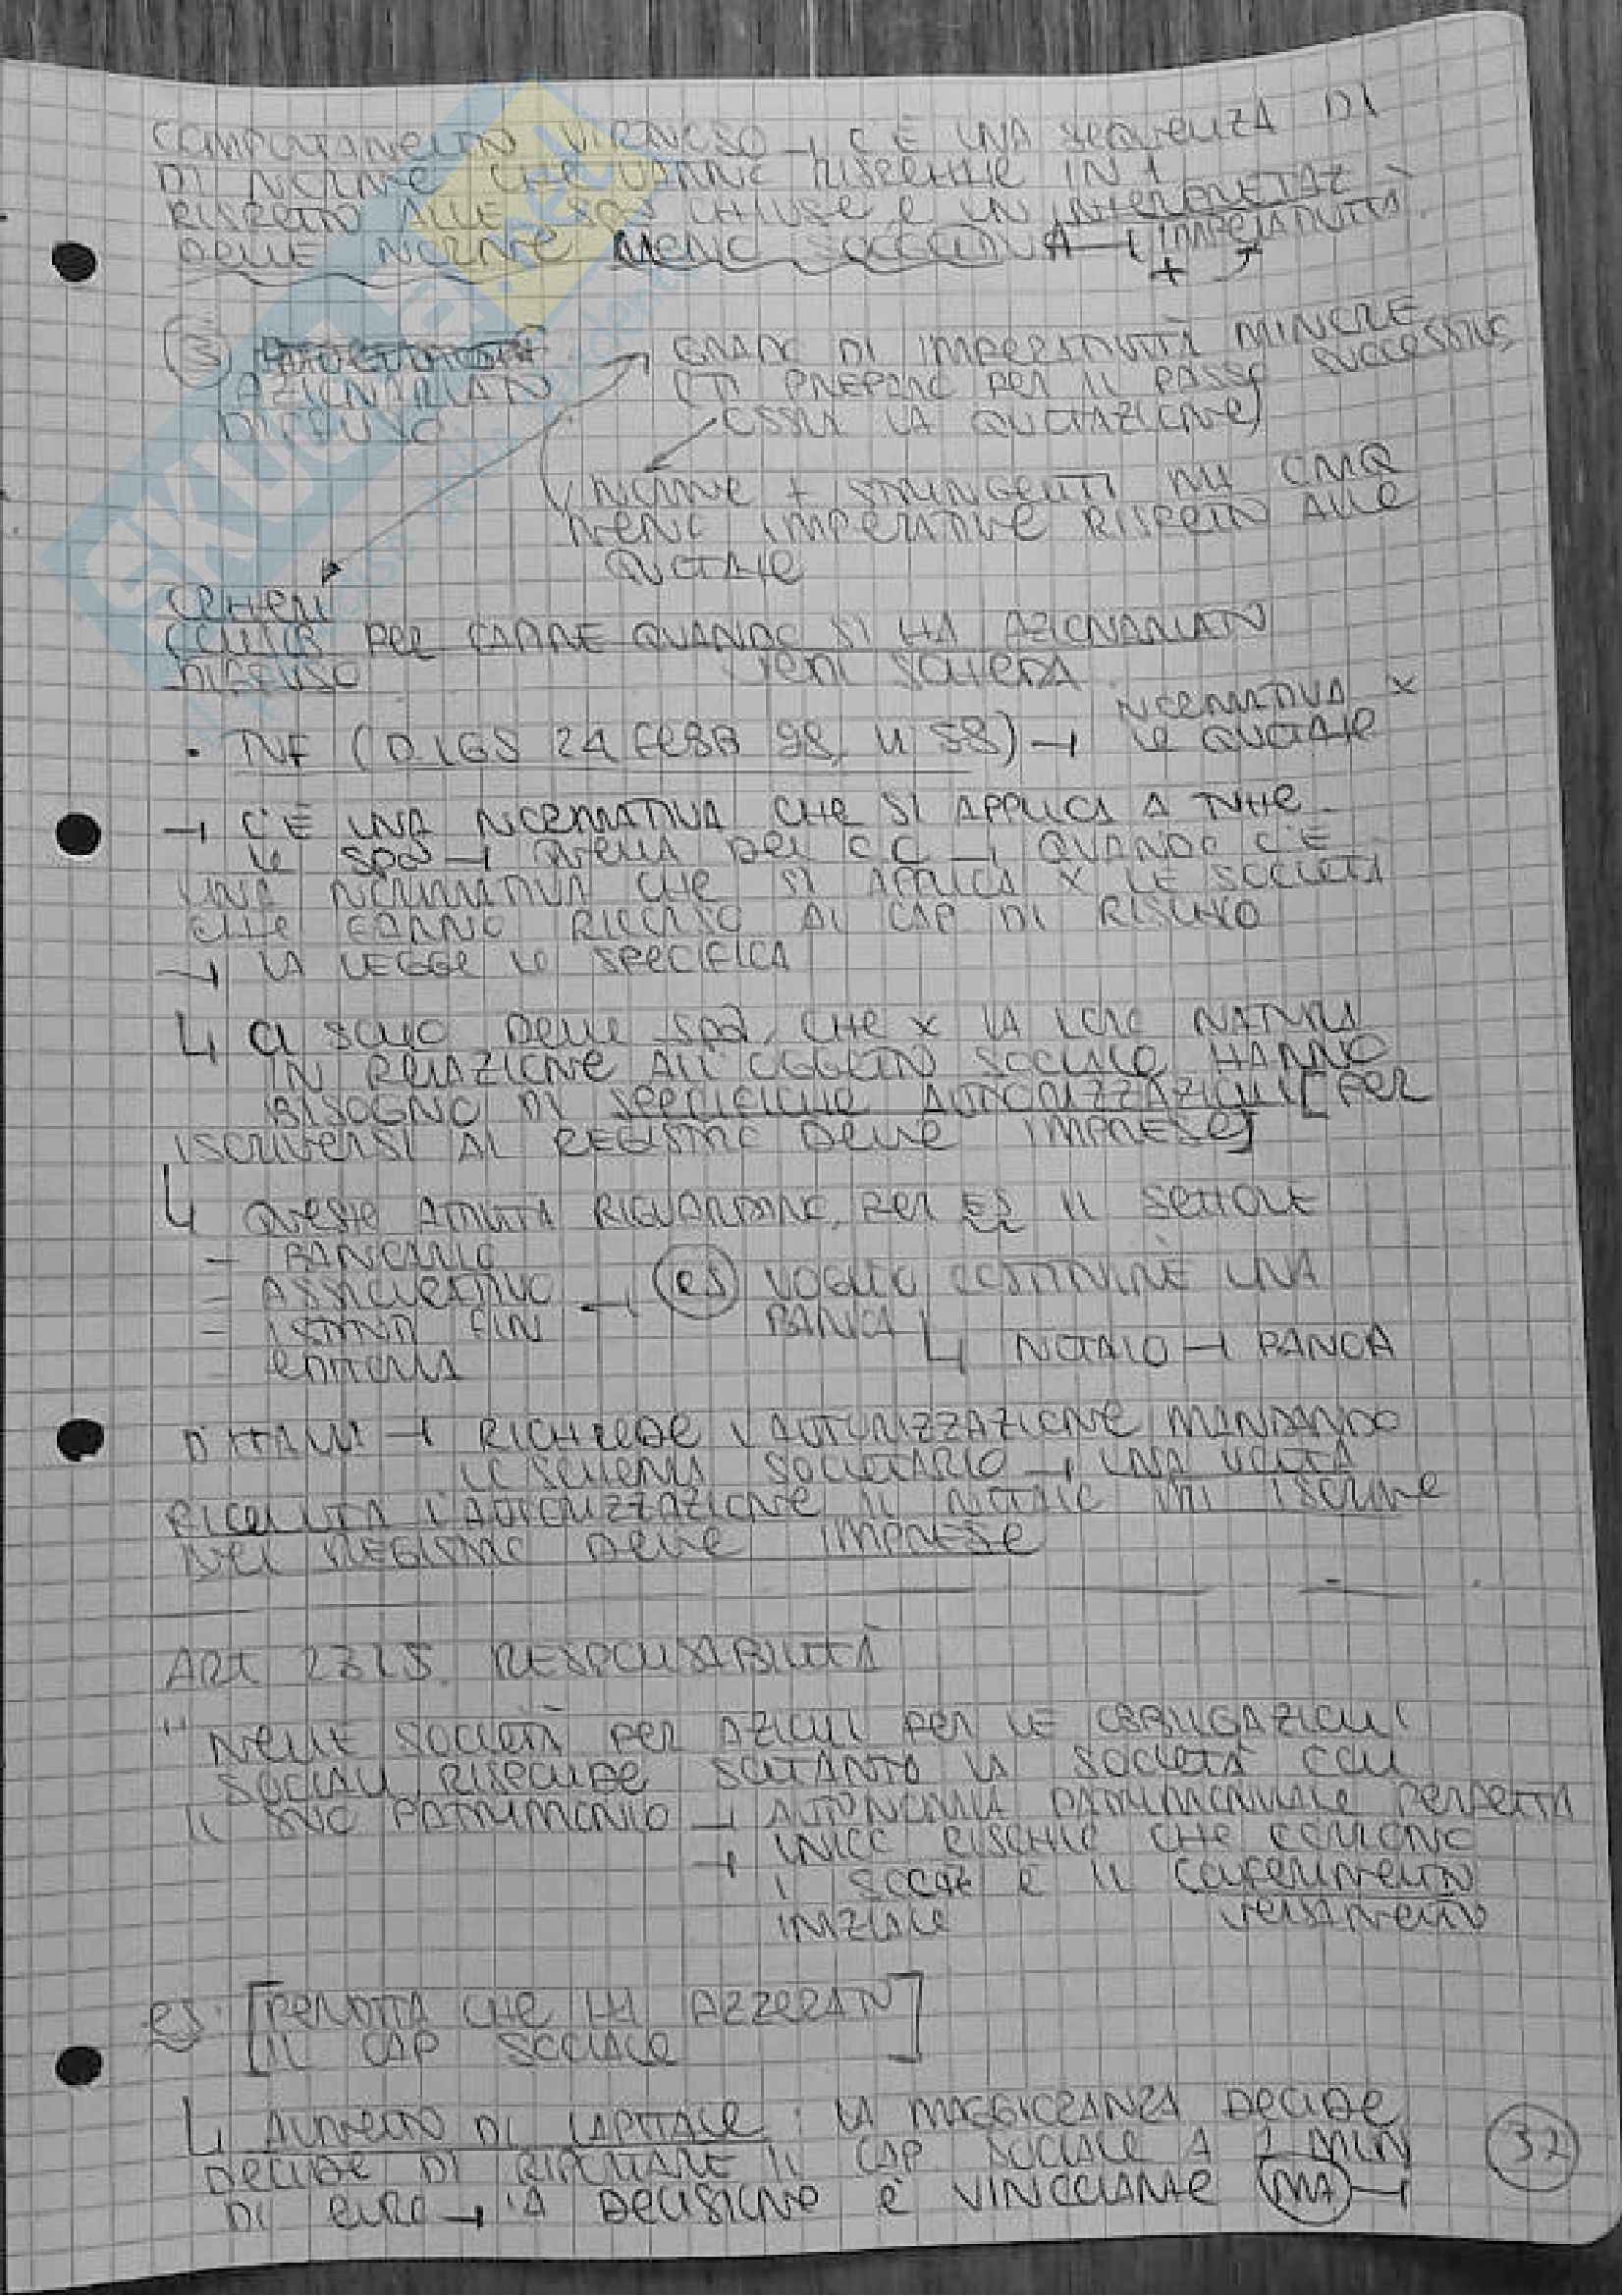 COMPORTAMENTO VIRTUOSO → C'È UNA SEQUENZA DI
DI NORME CHE VANNO RISPETTATE IN +
RISPETTO ALLE SPA CHIUSE E UN INTERPRETAZ
DELLE NORME MENO SOGGETTIVA → IMPERATIVITÀ
+
3 AZIONARIATO
DIFFUSO
GRADO DI IMPERATIVITÀ MINORE
(TI PREPARO PER IL PASSO SUCCESSIVO,
OSSIA LA QUOTAZIONE)
NORME + STRINGENTI MA CMQ
MENO IMPERATIVE RISPETTO ALLE
QUOTATE
CRITERI
CONSOB PER CAPIRE QUANDO SI HA AZIONARIATO
DIFFUSO VEDI SCHEDA
• TUF (D.LGS 24 FEBB 98, N 58) → NORMATIVA X
LE QUOTATE
→ C'È UNA NORMATIVA CHE SI APPLICA A TUTTE
LE SPA → QUELLA DEL C.C → QUANDO C'È
UNA NORMATIVA CHE SI APPLICA X LE SOCIETÀ
CHE FANNO RICORSO AL CAP DI RISCHIO
→ LA LEGGE LO SPECIFICA
↳ CI SONO DELLE SPA, CHE X LA LORO NATURA
IN RELAZIONE ALL'OGGETTO SOCIALE HANNO
BISOGNO DI SPECIFICHE AUTORIZZAZIONI [PER
ISCRIVERSI AL REGISTRO DELLE IMPRESE]
↳ QUESTE ATTIVITÀ RIGUARDANO, PER ES IL SETTORE
- BANCARIO
- ASSICURATIVO → (ES) VOGLIO COSTITUIRE UNA
- ISTITUTI FIN BANCA ↳ NOTAIO → BANCA
- EDITORIA
D'ITALIA → RICHIEDE L'AUTORIZZAZIONE MANDANDO
LO SCHEMA SOCIETARIO → UNA VOLTA
RICEVUTA L'AUTORIZZAZIONE IL NOTAIO MI ISCRIVE
NEL REGISTRO DELLE IMPRESE
ART 2325. RESPONSABILITÀ
"NELLE SOCIETÀ PER AZIONI PER LE OBBLIGAZIONI
SOCIALI RISPONDE SOLTANTO LA SOCIETÀ CON
IL SUO PATRIMONIO → AUTONOMIA PATRIMONIALE PERFETTA
→ UNICO RISCHIO CHE CORRONO
I SOCI E IL CONFERIMENTO
INIZIALE VERSAMENTO
ES. [PERDITA CHE HA AZZERATO
IL CAP SOCIALE]
↳ AUMENTO DI CAPITALE: LA MAGGIORANZA DECIDE
DECIDE DI RIPORTARE IL CAP SOCIALE A 1 MLN
DI EURO → LA DECISIONE È VINCOLANTE (MA) →
32